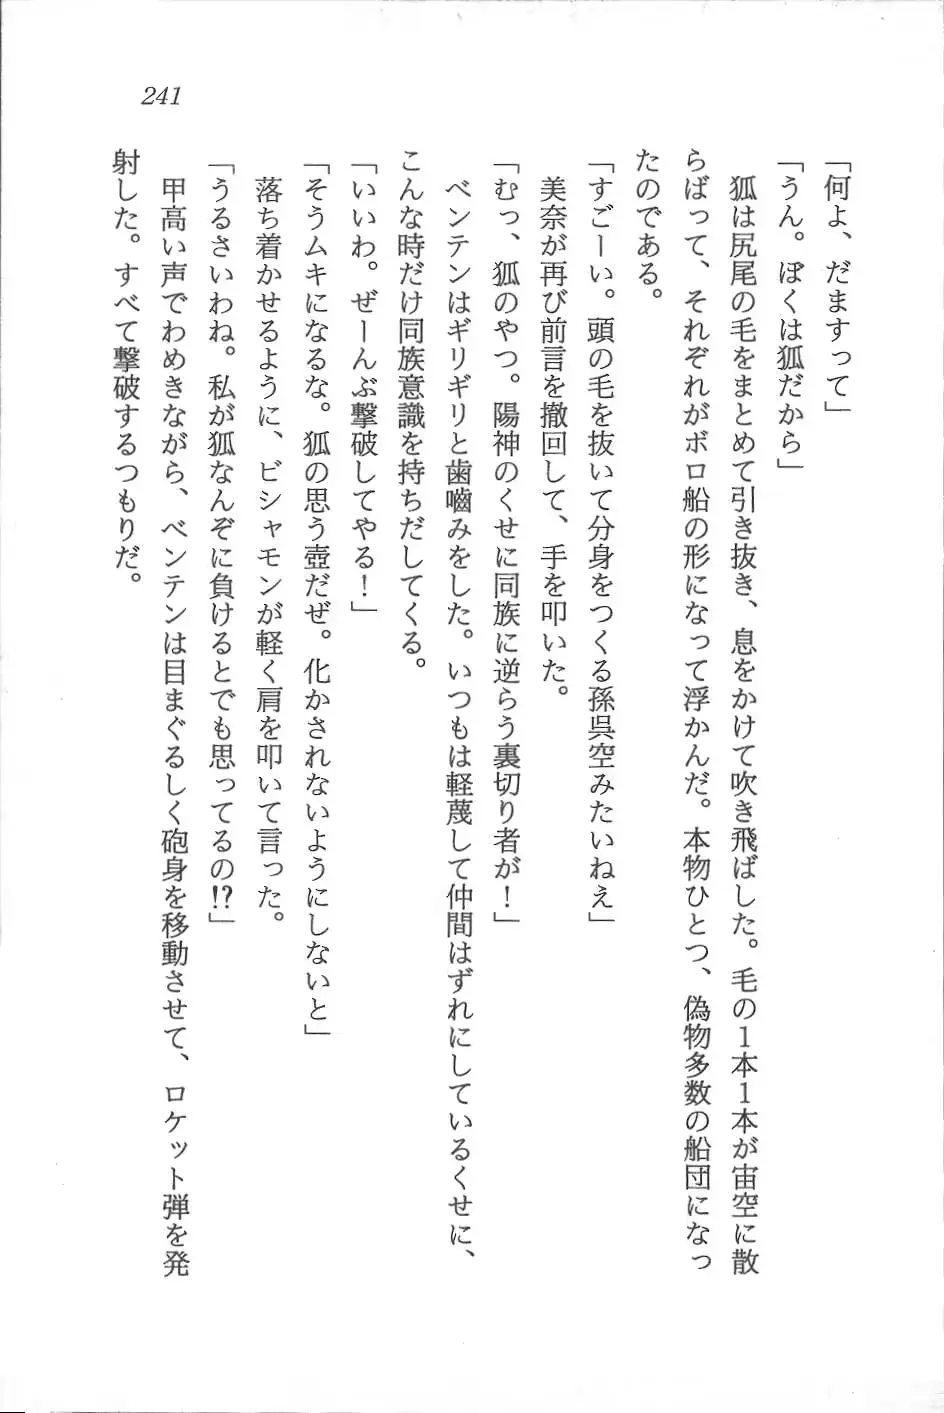 241
「何よ、だますって」
「うん。ぼくは狐だから」
　狐は尻尾の毛をまとめて引き抜き、息をかけて吹き飛ばした。毛の1本1本が宙空に散
らばって、それぞれがボロ船の形になって浮かんだ。本物ひとつ、偽物多数の船団になっ
たのである。
「すごーい。頭の毛を抜いて分身をつくる孫呉空みたいねえ」
　美奈が再び前言を撤回して、手を叩いた。
「むっ、狐のやつ。陽神のくせに同族に逆らう裏切り者が！」
　ベンテンはギリギリと歯嚙みをした。いつもは軽蔑して仲間はずれにしているくせに、
こんな時だけ同族意識を持ちだしてくる。
「いいわ。ぜーんぶ撃破してやる！」
「そうムキになるな。狐の思う壺だぜ。化かされないようにしないと」
　落ち着かせるように、ビシャモンが軽く肩を叩いて言った。
「うるさいわね。私が狐なんぞに負けるとでも思ってるの!?」
　甲高い声でわめきながら、ベンテンは目まぐるしく砲身を移動させて、ロケット弾を発
射した。すべて撃破するつもりだ。